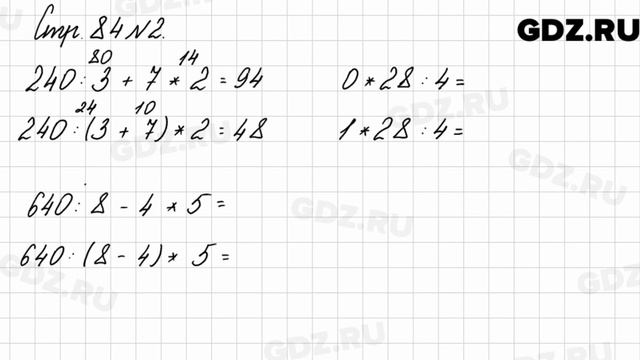 Стр. 84 №2.
GDZ.RU
80 14
240 : 3 + 7 * 2 = 94
24 10
240 : (3 + 7) * 2 = 48
0 * 28 : 4 =
1 * 28 : 4 =
640 : 8 - 4 * 5 =
640 : (8 - 4) * 5 =
GDZ.RU
GDZ.RU
GDZ.RU
GDZ.RU
GDZ.RU
GDZ.RU
GDZ.RU